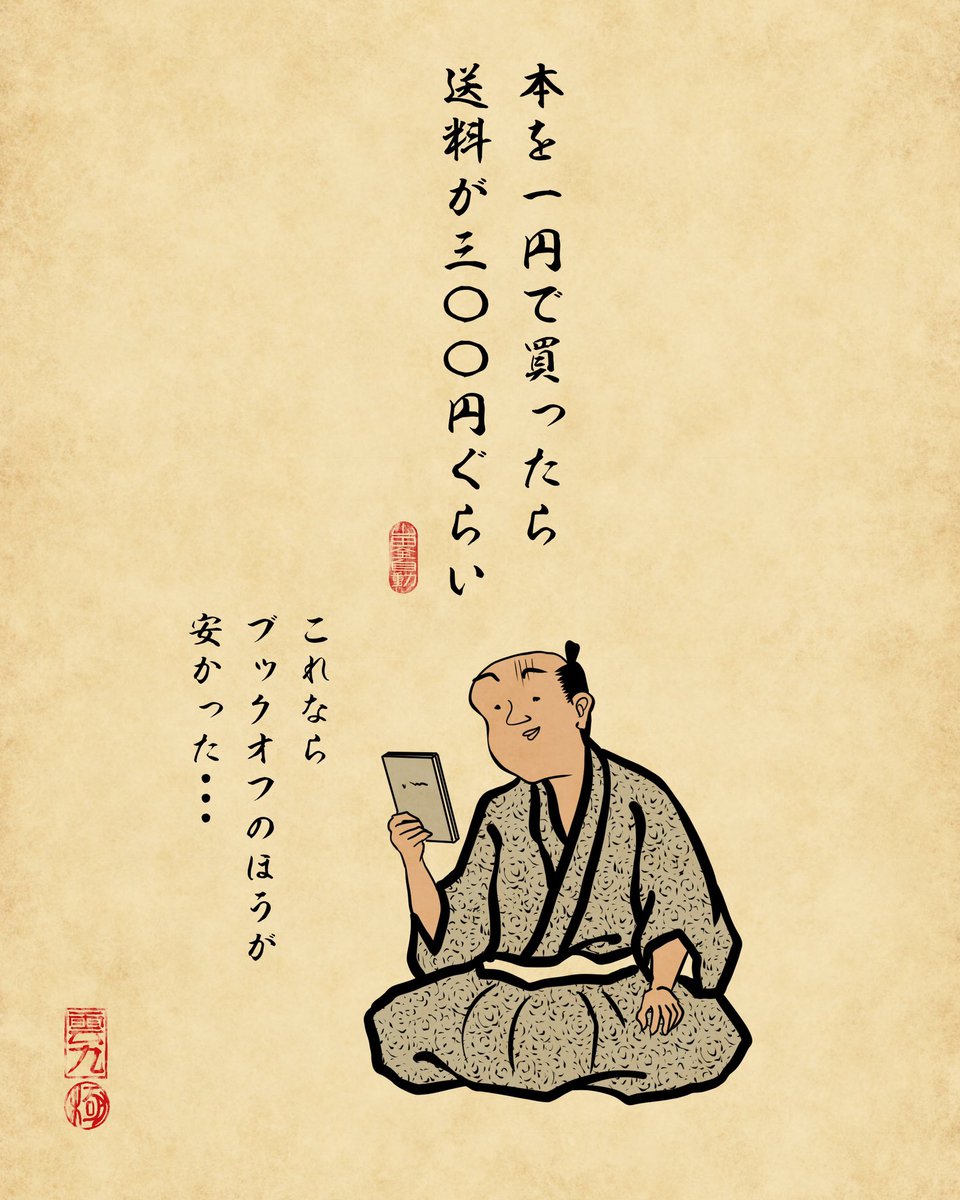 本を一円で買ったら
送料が三〇〇円ぐらい
これなら
ブックオフのほうが
安かった・・・